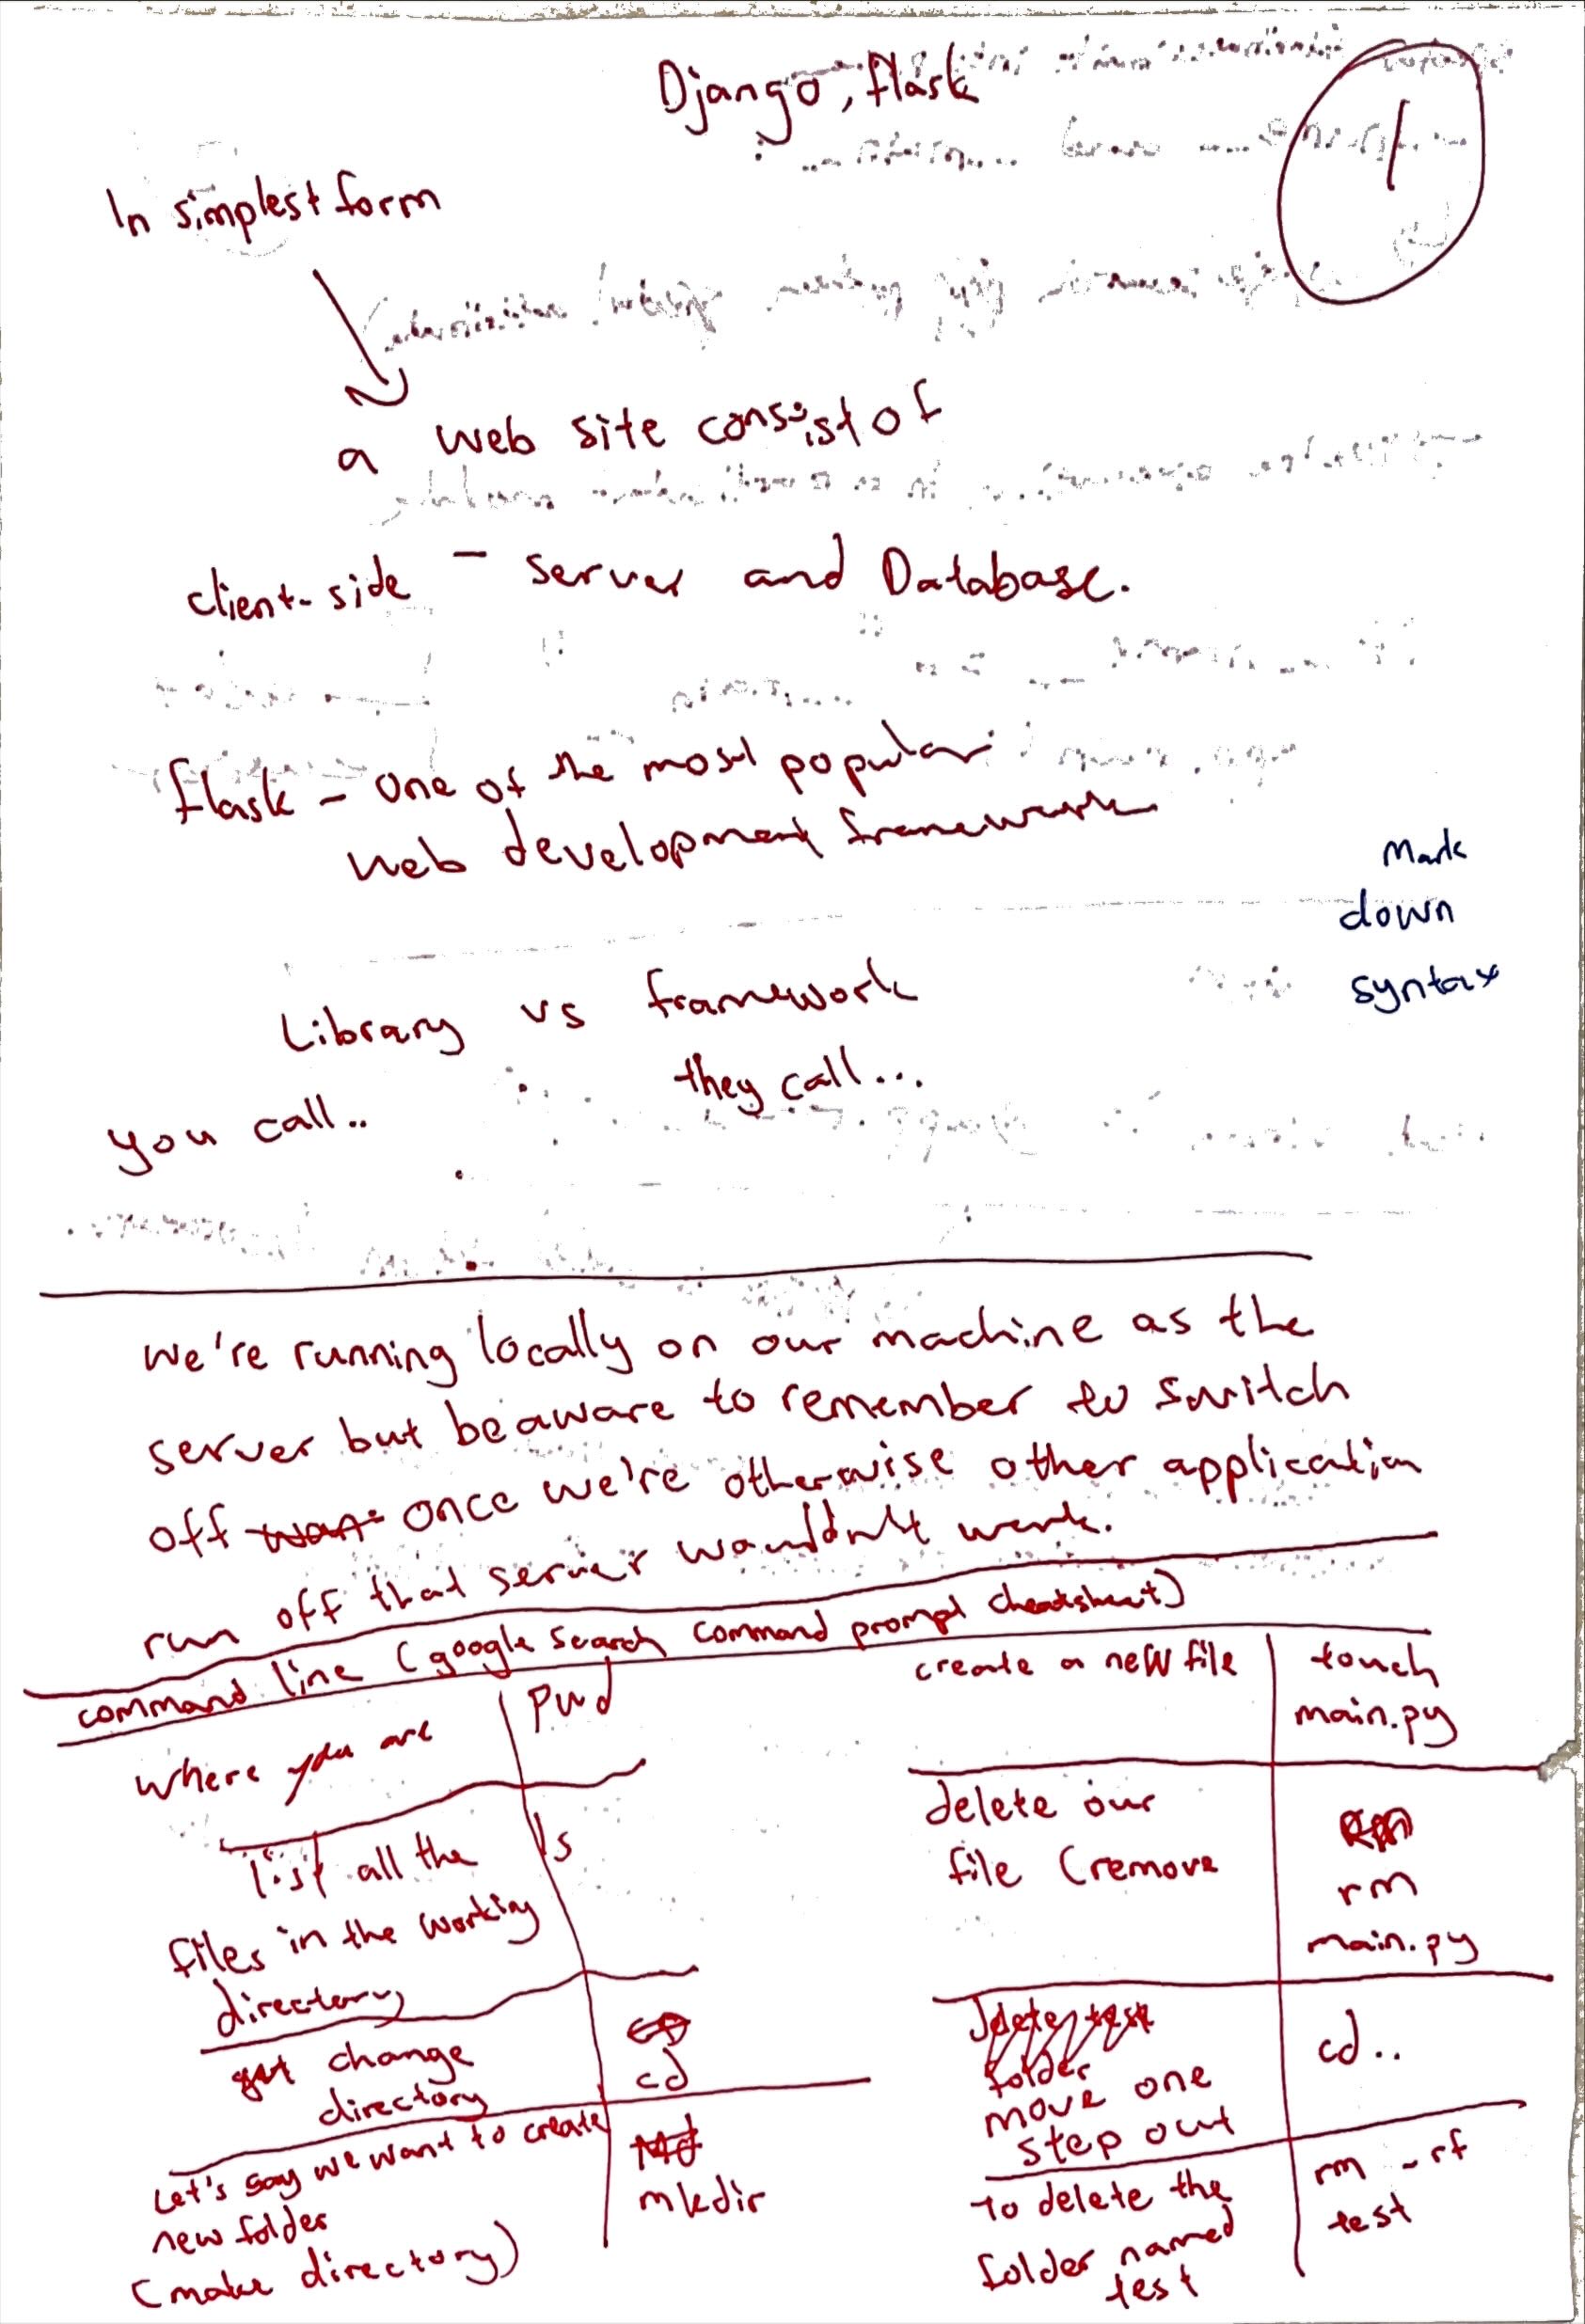 Django, flask
1
In simplest form
a web site consist of
client-side - server and Database.
flask - one of the most popular
web development framework
Mark
down
syntax
Library vs framework
you call.. they call...
we're running locally on our machine as the
server but be aware to remember to switch
off once we're otherwise other application
run off that server wouldn't work.
command line (google search command prompt cheatsheet)
where you are pwd
list all the ls
files in the working
directory
change
directory cd
Let's say we want to create
new folder mkdir
(make directory)
create a new file touch
main.py
delete our
file (remove rm
main.py
move one cd..
step out
To delete the rm -rf
folder named test
test